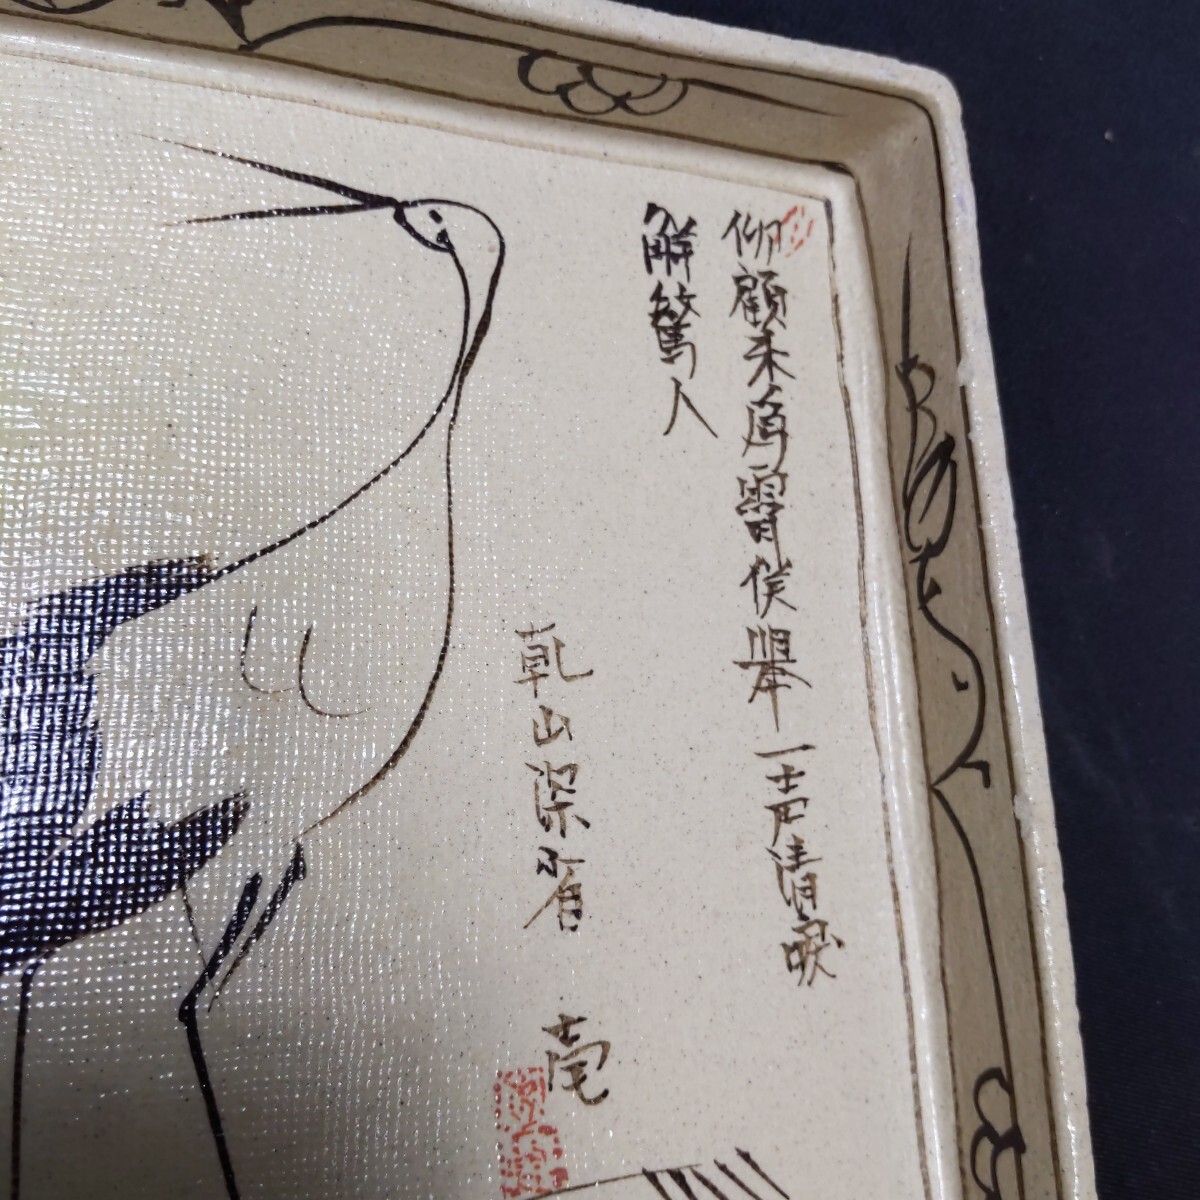 仰顧未角霄俟舉一声清唳
解驚人
乾山深省